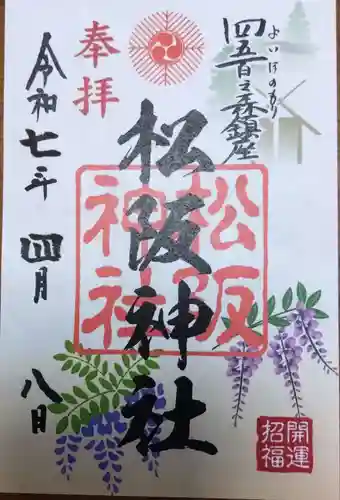 四五百之森鎮座
よいほのもり
奉拝
松阪神社
松阪
神社
令和七年
四月
八日
開運
招福